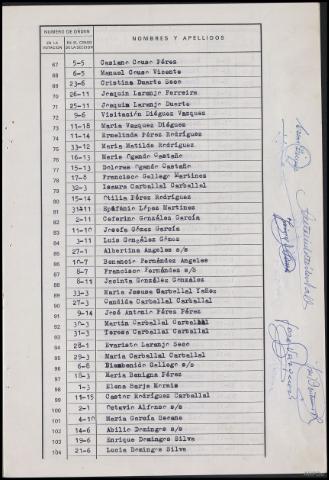 NUMERO DE ORDEN
NOMBRES Y APELLIDOS
EN LA VOTACION
EN EL CENSO DE LA SECCION
67 5-5 Casiano Couso Pérez
68 6-5 Manuel Couso Vicente
69 23-6 Cristina Duarte Seco
70 26-11 Joaquin Laranjo Ferreira
71 25-11 Joaquin Laranjo Duarte
72 9-6 Visitación Diéguez Vazquez
73 11-18 Maria Vazquez Diéguez
74 11-14 Ermelinda Pérez Rodríguez
75 33-12 Maria Matilde Rodríguez
76 16-13 Mario Ogando Castaño
77 15-13 Dolores Ogando Castaño
78 17-8 Francisco Gallego Martinez
79 32-3 Isaura Carballal Carballal
80 15-14 Otilia Pérez Rodríguez
81 Epifanio López Martinez
82 2-11 Ceferino González García
83 11-10 Josefa Gómez García
84 3-11 Luis González Gómez
85 27-1 Albertina Angeles s/s
86 10-7 Benancio Fernández Angeles
87 8-7 Francisco Fernández s/s
88 8-11 Jacinta González González
89 33-3 Maria Josusa Carballal Yañez
90 27-3 Candida Carballal Carballal
91 9-14 José Antonio Pérez Pérez
92 30-3 Martin Carballal Carballal
93 31-3 Teresa Carballal Carballal
94 28-1 Evaristo Laranjo Seco
95 29-3 Maria Carballal Carballal
96 6-8 Bienbenido Gallego s/s
97 10-3 Maria Benigna Pérez
98 1-3 Elena Borja Morais
99 11-15 Castor Rodríguez Carballal
100 2-1 Octavio Alfonso s/s
101 4-10 Maria García Seoane
102 14-6 Abilio Domingos s/s
103 19-6 Enrique Domingos Silva
104 21-6 Lucia Domingos Silva